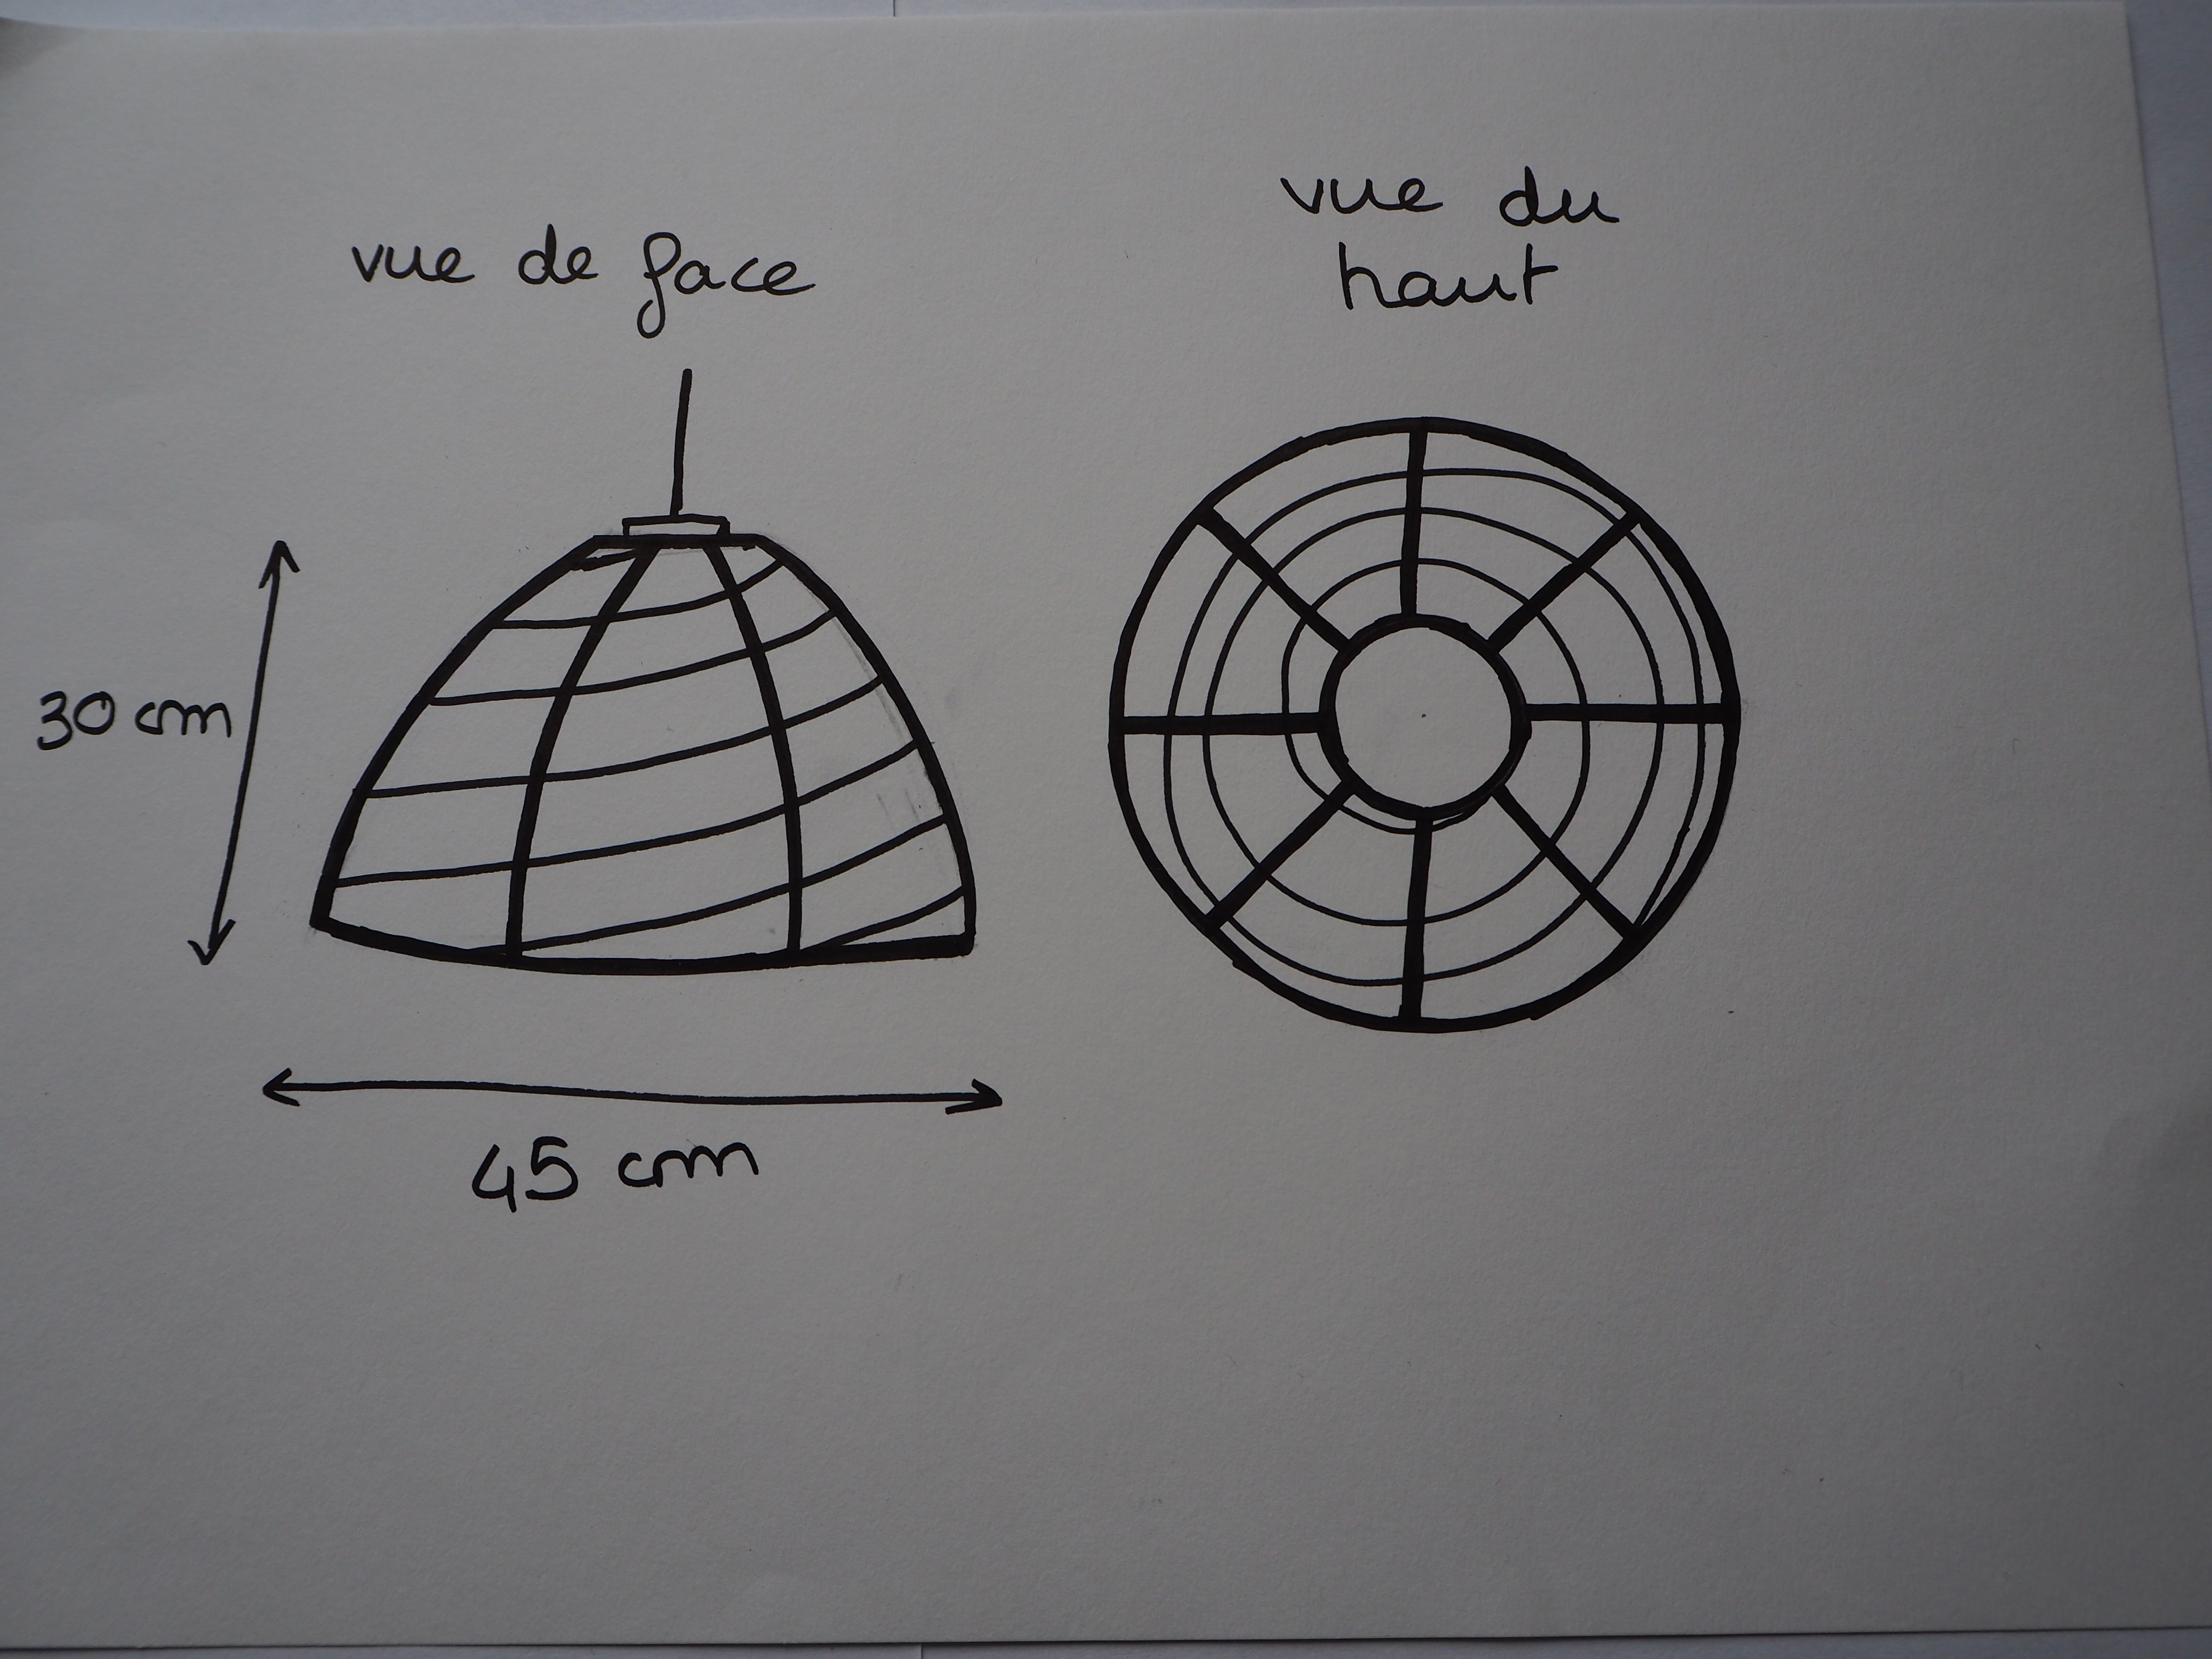 vue de face
vue du
haut
30 cm
45 cm